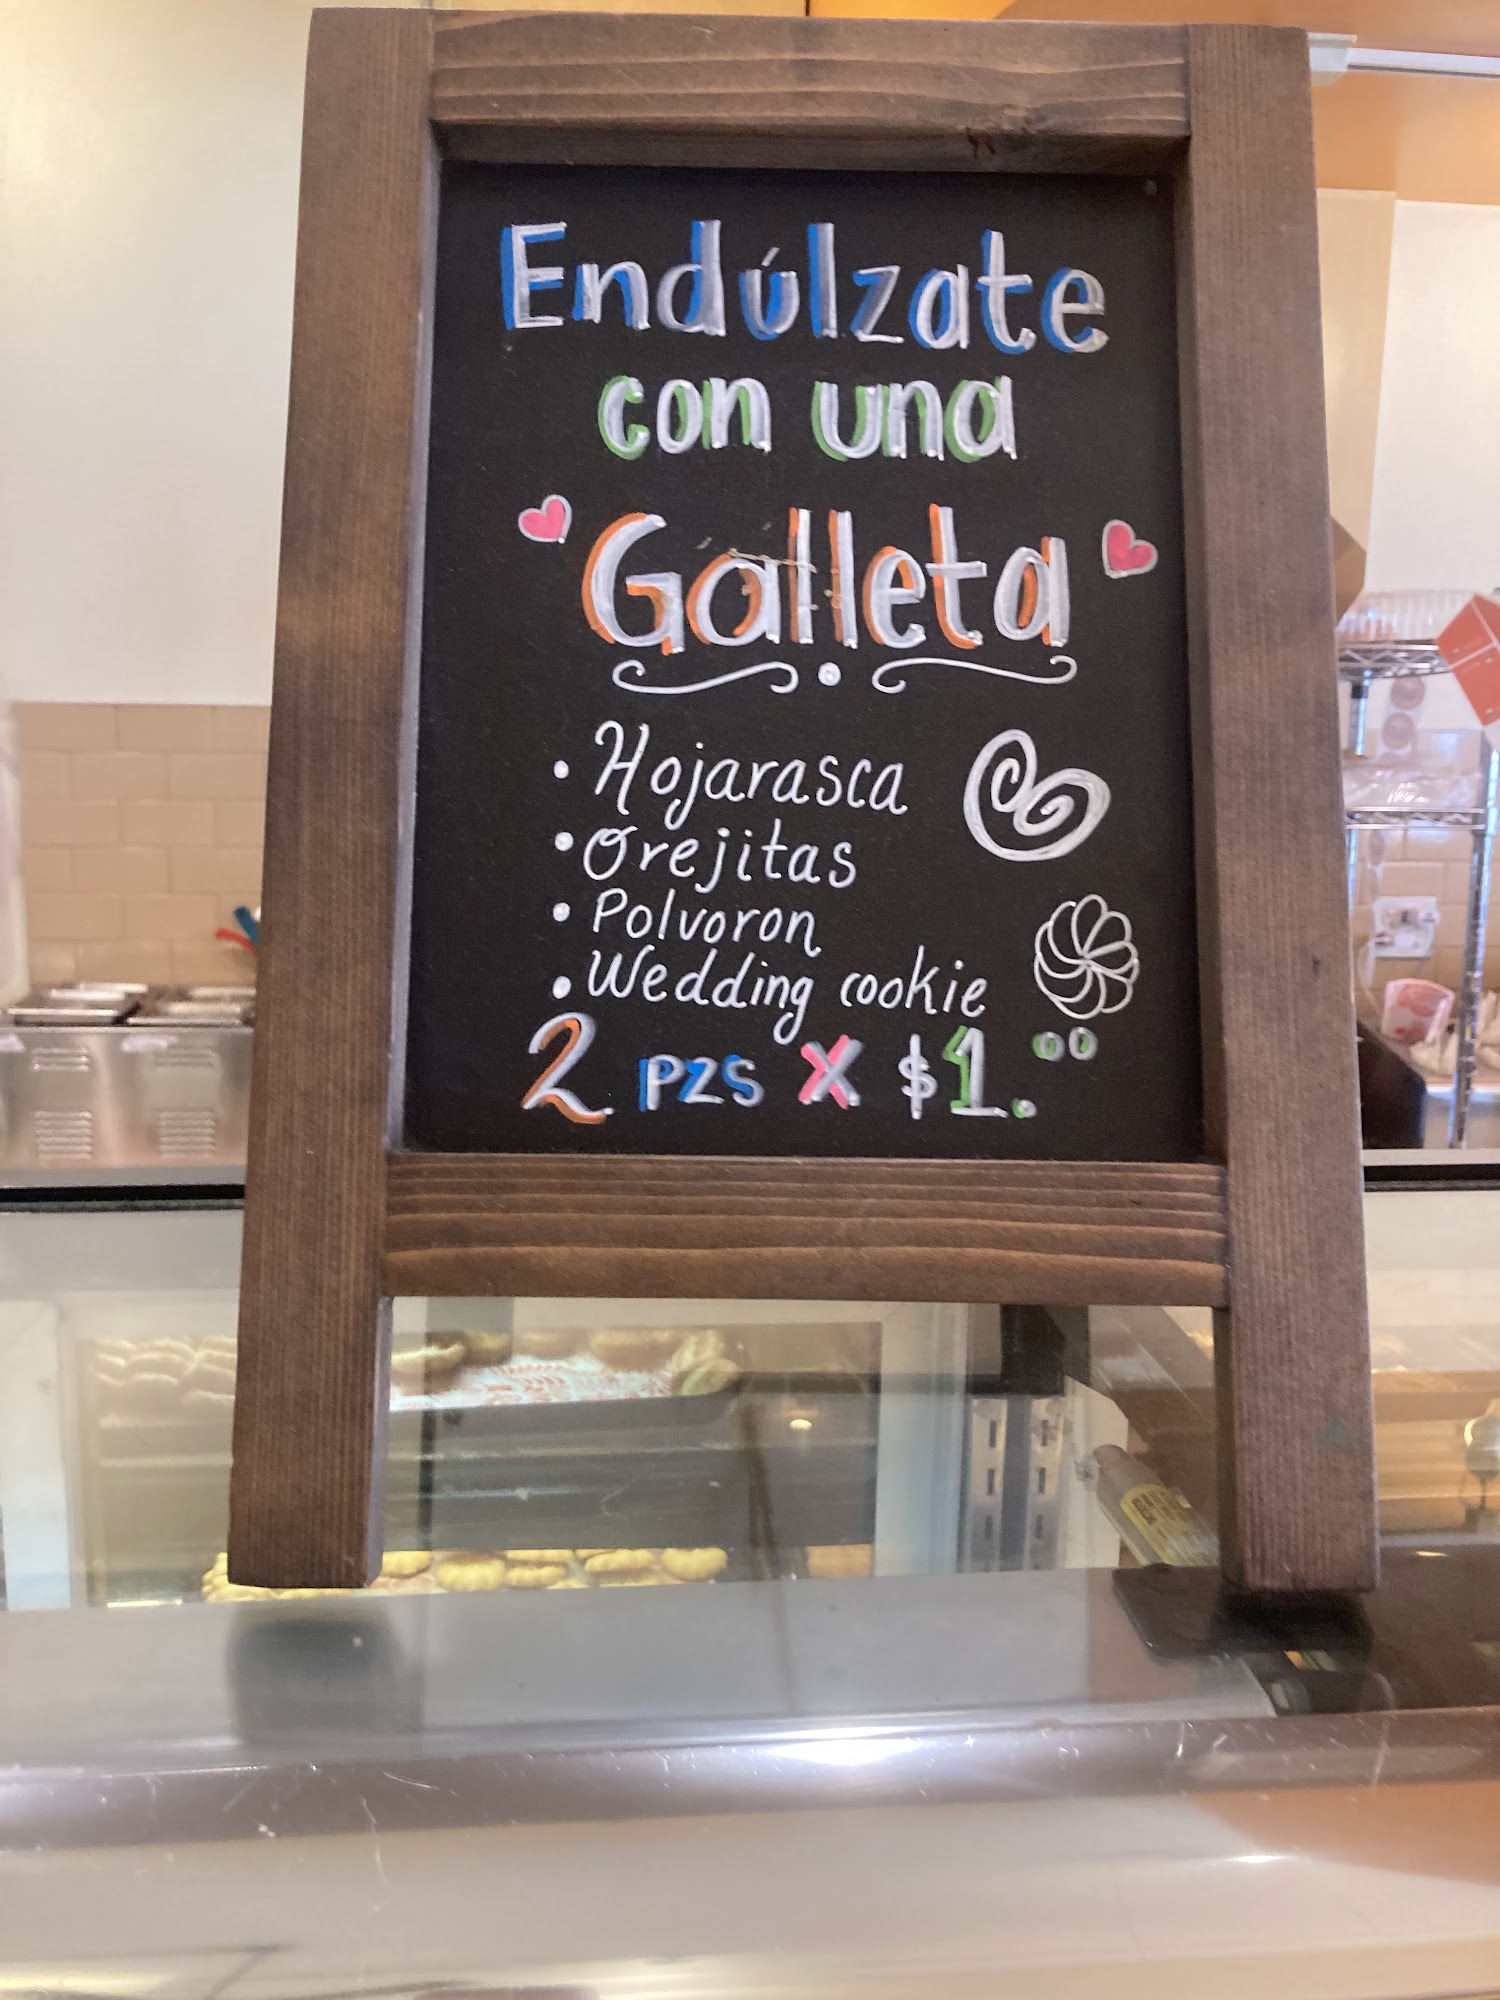 Endúlzate
con una
Galleta
• Hojarasca
• Orejitas
• Polvoron
• Wedding cookie
2 pzs X $1.00